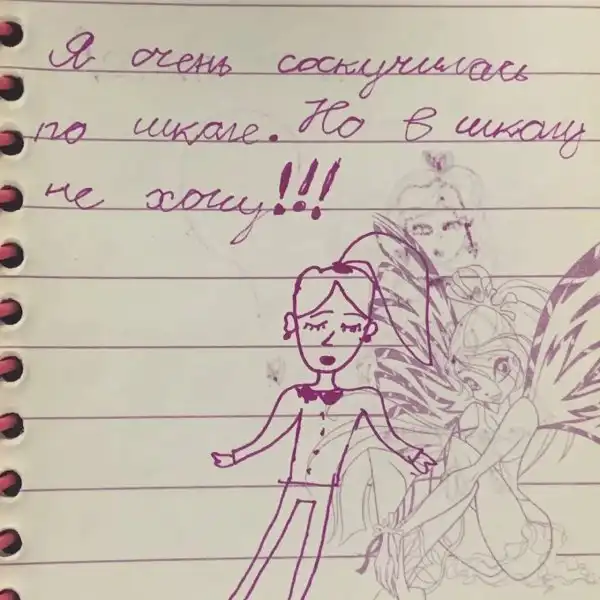 Я очень соскучилась
по школе. Но в школу
не хочу!!!